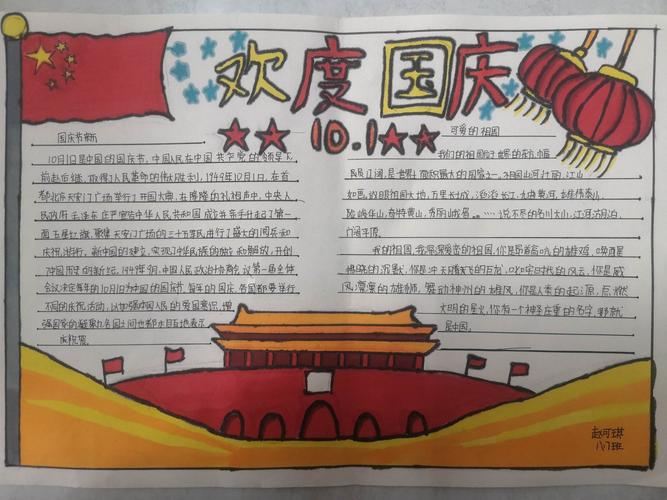 欢度国庆
10.1
国庆节来历
10月1日是中国的国庆节,中国人民在中国共产党的领导下
前赴后继,取得了人民革命的伟大胜利,1949年10月1日,在首
都北京天安门广场举行了开国大典,在隆隆的礼炮声中,中央人
民政府毛泽东庄严宣告中华人民共和国成立并亲手升起了第一
面五星红旗,聚集天安门广场的三十万军民进行了盛大的阅兵和
庆祝游行,新中国的建立,实现了中华民族的独立和解放,开创
中国历史的新纪,1949年
中国人民政治协商会议第一届全体
会议决定每年的10月1日为中国的国庆节,每年的国庆,各国都要举行
不同的庆祝活动,以加强本国人民的爱国意识,增
强国家的凝聚力各国之间也都
表示
庆祝贺
可爱的祖国
我们的祖国
世界的东方,幅
员辽阔,是世界上面积最大的国家之一,祖国山河壮丽,江山
如画,说明祖国大地,万里长城,滔滔长江,九曲黄河,雄伟泰山,
险峻华山,奇特黄山,秀丽峨眉……说不尽的名川大山,江河湖泊,
我的祖国,我深深爱恋的祖国,你是昂首高吭的雄鸡,唤
拂晓的沉默,你是冲天腾飞的巨龙,叱咤时代的风云,你是威
风凛凛的雄狮,舞动神州的雄风,你是人类的起源,点燃
文明的星火,你有一个神圣庄重的名字,那就
是中国。
赵可琪
八7班